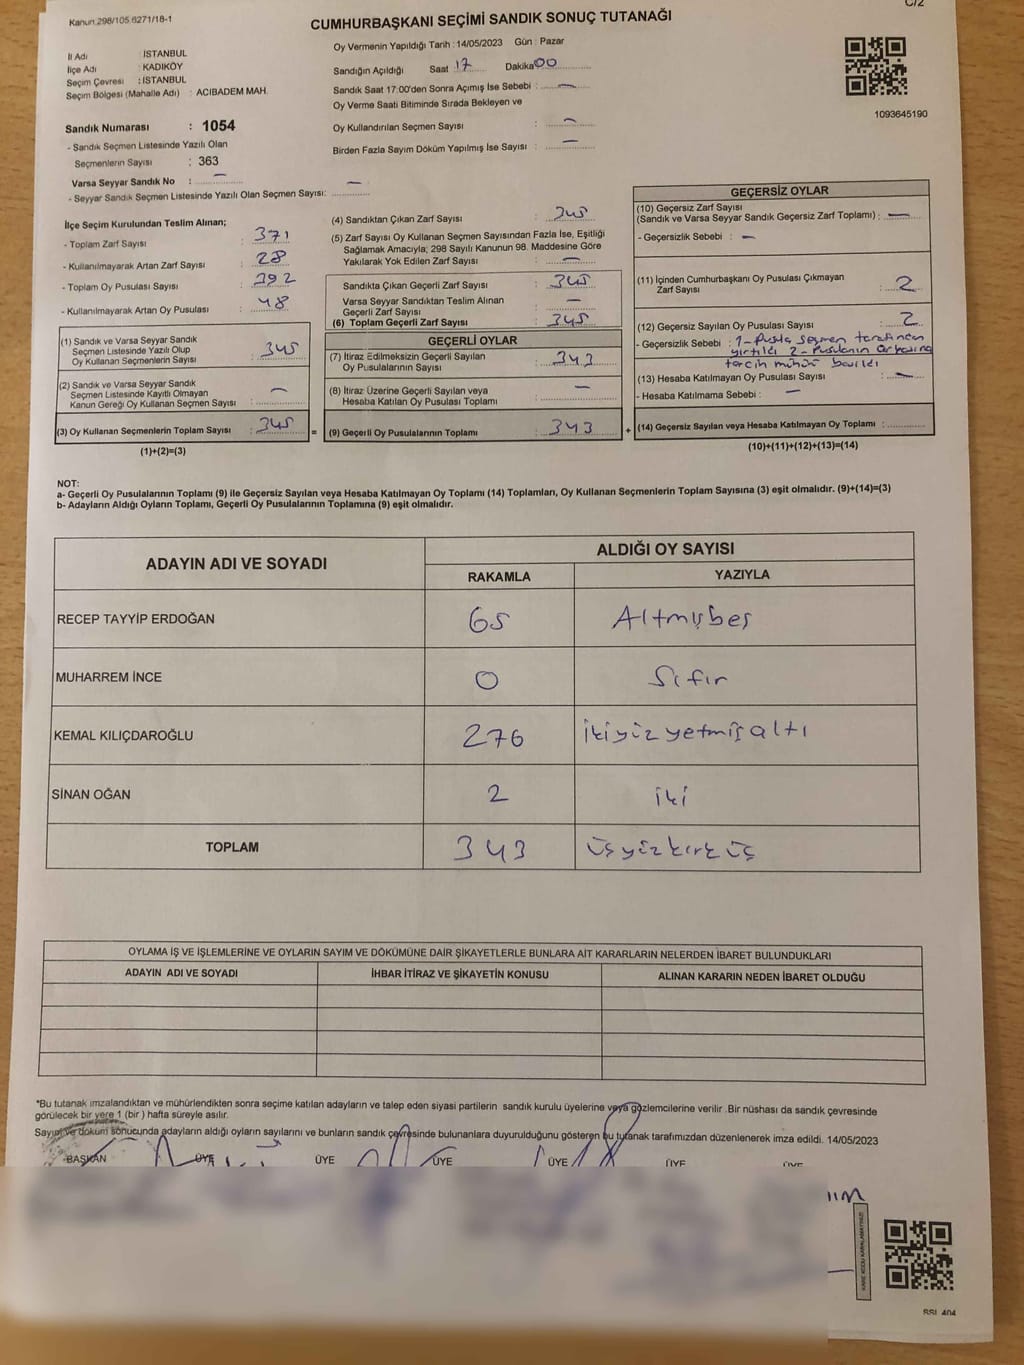 C/2
Kanun 298/105 6271/18-1
CUMHURBAŞKANI SEÇİMİ SANDIK SONUÇ TUTANAĞI
İl Adı : İSTANBUL
İlçe Adı : KADIKÖY
Seçim Çevresi : İSTANBUL
Seçim Bölgesi (Mahalle Adı) : ACIBADEM MAH.
Sandık Numarası : 1054
- Sandık Seçmen Listesinde Yazılı Olan
Seçmenlerin Sayısı : 363
Varsa Seyyar Sandık No : —
- Seyyar Sandık Seçmen Listesinde Yazılı Olan Seçmen Sayısı: —
Oy Vermenin Yapıldığı Tarih : 14/05/2023 Gün : Pazar
Sandığın Açıldığı Saat 17 Dakika 00
Sandık Saat 17:00'den Sonra Açımış İse Sebebi : —
Oy Verme Saati Bitiminde Sırada Bekleyen ve
Oy Kullandırılan Seçmen Sayısı : —
Birden Fazla Sayım Döküm Yapılmış İse Sayısı : —
1093645190
İlçe Seçim Kurulundan Teslim Alınan;
- Toplam Zarf Sayısı : 371
- Kullanılmayarak Artan Zarf Sayısı : 28
- Toplam Oy Pusulası Sayısı : 392
- Kullanılmayarak Artan Oy Pusulası : 48
(1) Sandık ve Varsa Seyyar Sandık
Seçmen Listesinde Yazılı Olup
Oy Kullanan Seçmenlerin Sayısı : 345
(2) Sandık ve Varsa Seyyar Sandık
Seçmen Listesinde Kayıtlı Olmayan
Kanun Gereği Oy Kullanan Seçmen Sayısı : —
(3) Oy Kullanan Seçmenlerin Toplam Sayısı : 345 =
(1)+(2)=(3)
(4) Sandıktan Çıkan Zarf Sayısı : 345
(5) Zarf Sayısı Oy Kullanan Seçmen Sayısından Fazla İse, Eşitliği
Sağlamak Amacıyla; 298 Sayılı Kanunun 98. Maddesine Göre
Yakılarak Yok Edilen Zarf Sayısı : —
Sandıkta Çıkan Geçerli Zarf Sayısı : 345
Varsa Seyyar Sandıktan Teslim Alınan
Geçerli Zarf Sayısı : —
(6) Toplam Geçerli Zarf Sayısı : 345
GEÇERLİ OYLAR
(7) İtiraz Edilmeksizin Geçerli Sayılan
Oy Pusulalarının Sayısı : 343
(8) İtiraz Üzerine Geçerli Sayılan veya
Hesaba Katılan Oy Pusulası Toplamı : —
(9) Geçerli Oy Pusulalarının Toplamı : 343 +
GEÇERSİZ OYLAR
(10) Geçersiz Zarf Sayısı
(Sandık ve Varsa Seyyar Sandık Geçersiz Zarf Toplamı) : —
- Geçersizlik Sebebi : —
(11) İçinden Cumhurbaşkanı Oy Pusulası Çıkmayan
Zarf Sayısı : 2
(12) Geçersiz Sayılan Oy Pusulası Sayısı : 2
- Geçersizlik Sebebi : 1-Pusla seçmen tarafından
yırtıldı 2- Pusulanın arkasına
tercih mühürü basıldı
(13) Hesaba Katılmayan Oy Pusulası Sayısı : —
- Hesaba Katılmama Sebebi : —
(14) Geçersiz Sayılan veya Hesaba Katılmayan Oy Toplamı :
(10)+(11)+(12)+(13)=(14)
NOT:
a- Geçerli Oy Pusulalarının Toplamı (9) ile Geçersiz Sayılan veya Hesaba Katılmayan Oy Toplamı (14) Toplamları, Oy Kullanan Seçmenlerin Toplam Sayısına (3) eşit olmalıdır. (9)+(14)=(3)
b- Adayların Aldığı Oyların Toplamı, Geçerli Oy Pusulalarının Toplamına (9) eşit olmalıdır.
ADAYIN ADI VE SOYADI ALDIĞI OY SAYISI
RAKAMLA YAZIYLA
RECEP TAYYİP ERDOĞAN 65 Altmışbeş
MUHARREM İNCE 0 Sıfır
KEMAL KILIÇDAROĞLU 276 ikiyüz yetmiş altı
SİNAN OĞAN 2 iki
TOPLAM 343 üçyüzkırküç
OYLAMA İŞ VE İŞLEMLERİNE VE OYLARIN SAYIM VE DÖKÜMÜNE DAİR ŞİKAYETLERLE BUNLARA AİT KARARLARIN NELERDEN İBARET BULUNDUKLARI
ADAYIN ADI VE SOYADI İHBAR İTİRAZ VE ŞİKAYETİN KONUSU ALINAN KARARIN NEDEN İBARET OLDUĞU
*Bu tutanak imzalandıktan ve mühürlendikten sonra seçime katılan adayların ve talep eden siyasi partilerin sandık kurulu üyelerine veya gözlemcilerine verilir .Bir nüshası da sandık çevresinde
görülecek bir yere 1 (bir ) hafta süreyle asılır.
Sayım ve döküm sonucunda adayların aldığı oyların sayılarını ve bunların sandık çevresinde bulunanlara duyurulduğunu gösteren bu tutanak tarafımızdan düzenlenerek imza edildi. 14/05/2023
BAŞKAN ÜYE ÜYE ÜYE ÜYE ÜYE ÜYE
KARE KODU KARALAMAYINIZ!
SSI 404